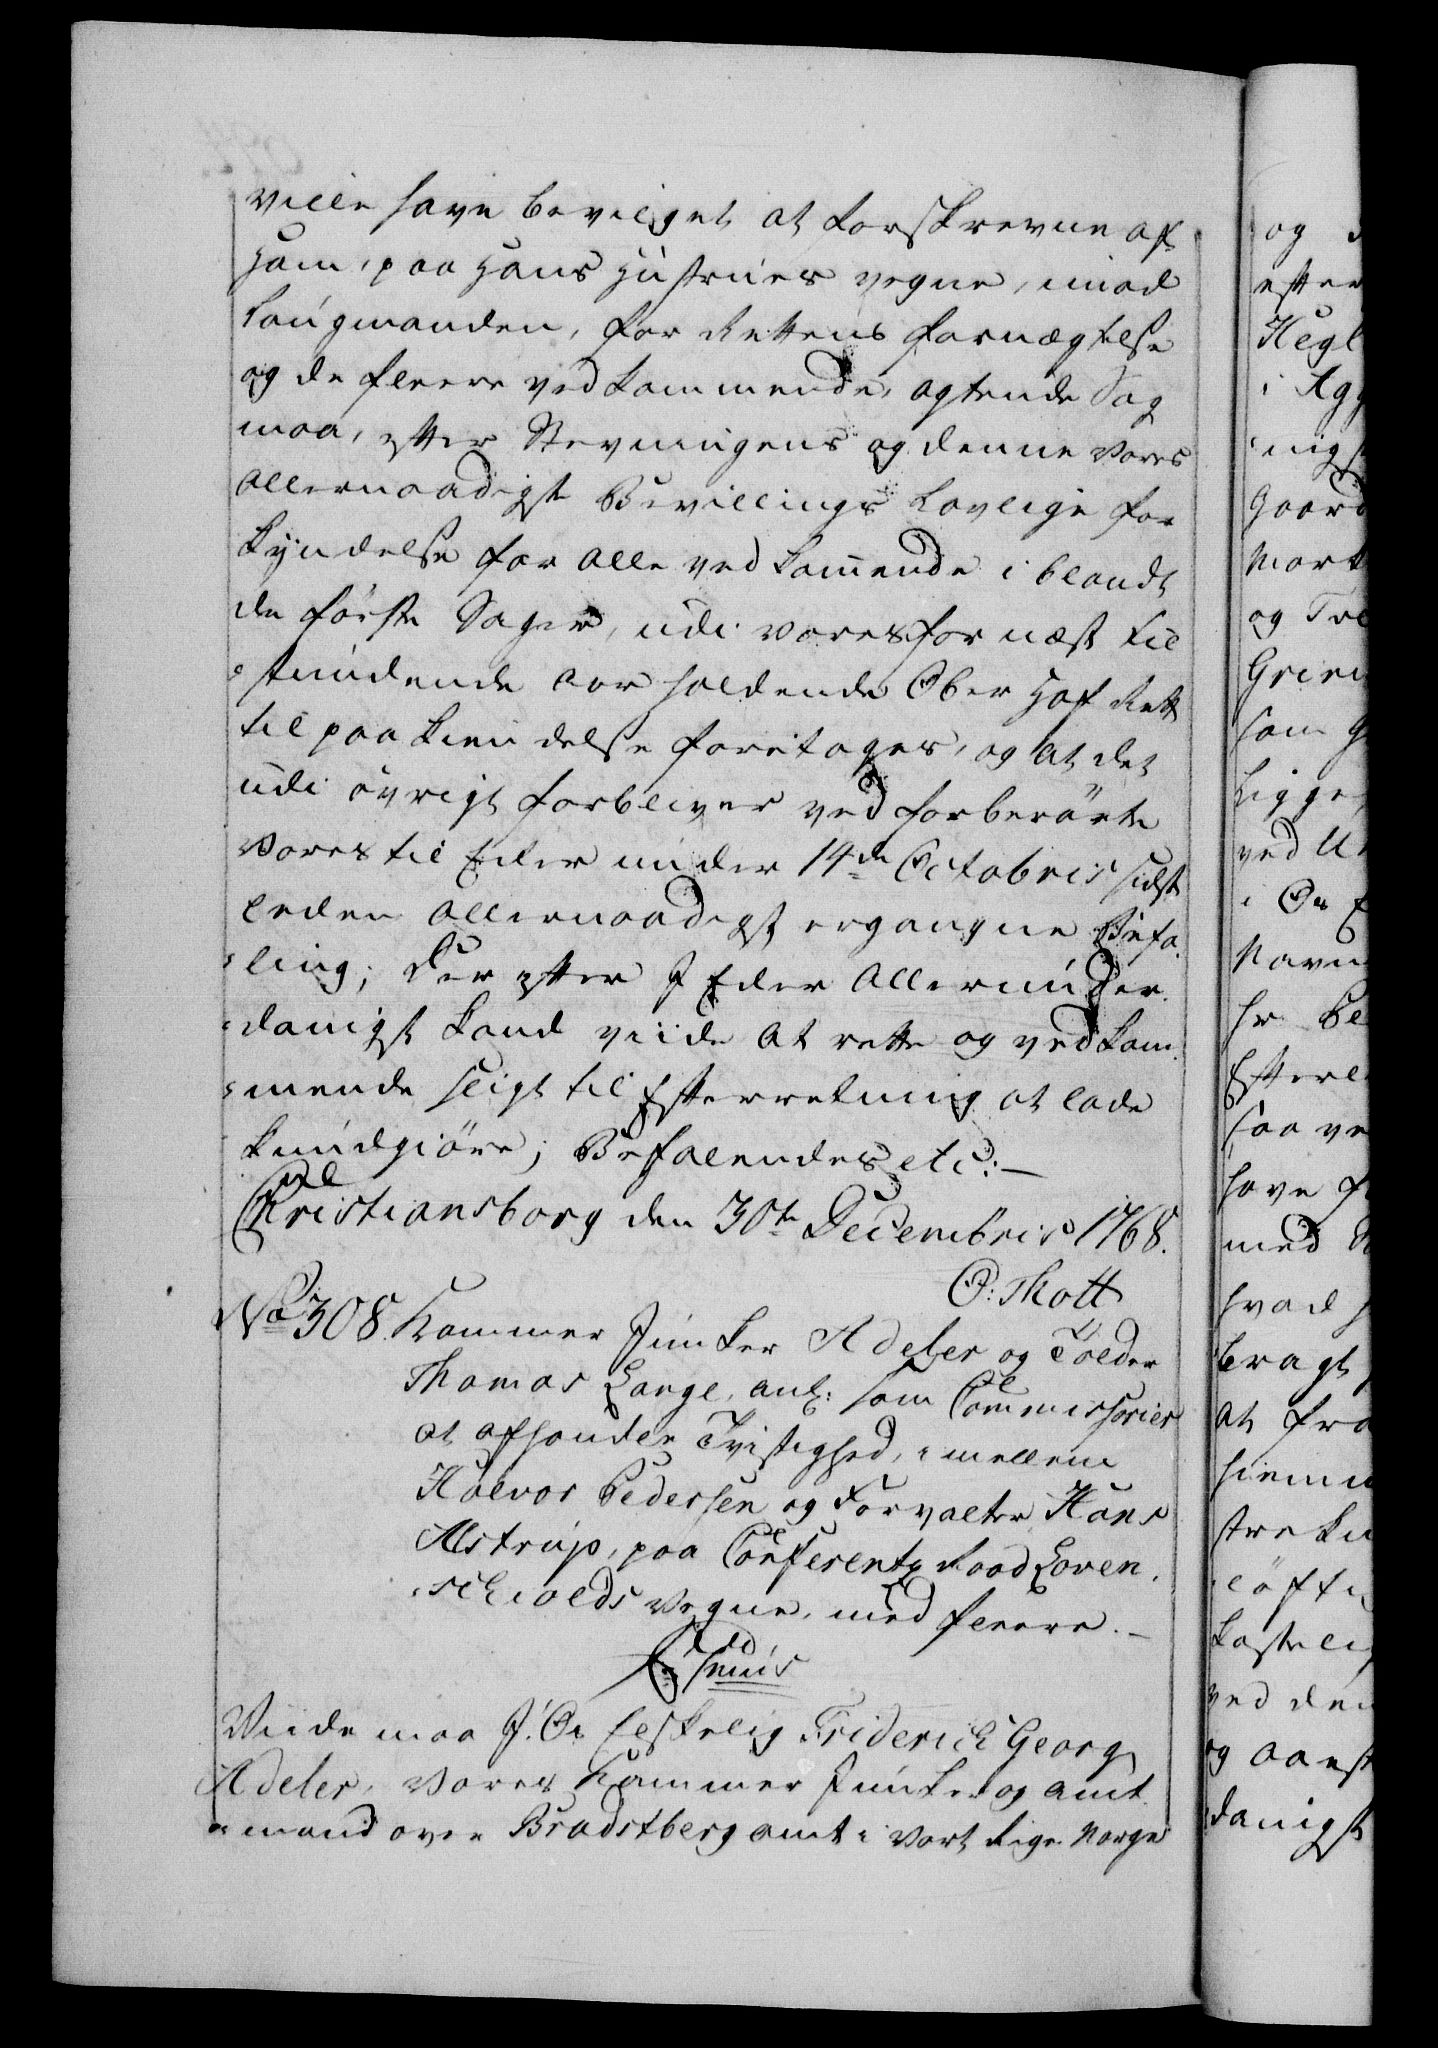 ville have bevilget at forskrevne af
ham, paa Hans Hustrues vegne, imod
Laugmanden, for Rettens fornægtelse
og de fleere vedkommende, agtende Sag
maa, efter Stevningens og denne Vores
allernaadigste Bevillings lovlige for
kyndelse for alle ved kom̄ende i blandt
de første Sager, udi vores for næst til
stundende aar holdende Ober Hof Rett
til paa kiendelse foretages, og at det
udi øvrigt forbliver ved forberørte
Vores til Eder under 14de Octobris sidst
leden allernaadigst ergangne Befa¬
ling; Der efter I Eder allerunder¬
danigst kand viide at rette og vedkom¬
mende sligt til Efterretning at lade
kundgiøre; Befalendes etc: —
Christiansborg den 30te Decembris 1768.
O: Thott
No 308. Kammer Junker Adeler og Tolder
Thomas Lange, anl: som Commissarier
at afhandle Tvistighed, imellem
Halvor Pedersen og Forvalter Hans
Alstrup, paa Conferentz Raad Løven¬
schiolds Vegne, med fleere. —
C 7mus
Viide maa I: Os Elskelig Friderich Georg
Adeler, Vores Kammer Junker og Amt
mand over Bradstberg amt i vort Rige Norge

og
efter
Hegl
i Agg
Gaard
og
ligge
ved
i Os
hr
saa ve
have
med
hvad
bragt
at fra
ved den
og
danigst